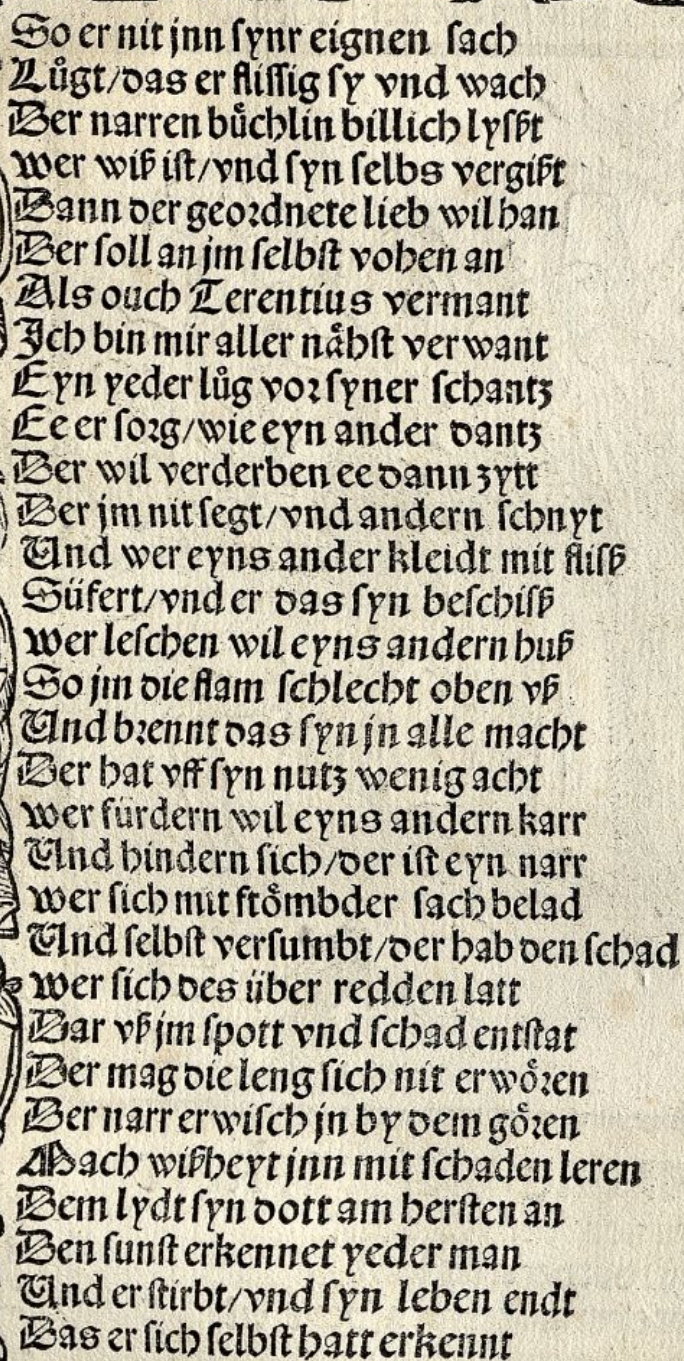 So er nit jnn ſynr eignen ſach
Lůgt/das er fliſſig ſy vnd wach
Der narren bůchlin billich lyſßt
wer wiß iſt/vnd ſyn ſelbs vergißt
Dann der geordnete lieb wil han
Der ſoll an jm ſelbſt vohen an
Als ouch Terentius vermant
Ich bin mir aller nåhſt verwant
Eyn yeder lůg vor ſyner ſchantz
Ee er ſorg/wie eyn ander dantz
Der wil verderben ee dann zytt
Der jm nit ſegt/vnd andern ſchnyt
Und wer eyns ander kleidt mit fliſß
Süfert/vnd er das ſyn beſchiſß
wer leſchen wil eyns andern huß
So jm die flam ſchlecht oben vß
Und brennt das ſyn jn alle macht
Der hat vff ſyn nutz wenig acht
wer fürdern wil eyns andern karr
Und hindern ſich/der iſt eyn narr
wer ſich mit ftömbder ſach belad
Und ſelbſt verſumbt/der hab den ſchad
wer ſich des über redden latt
Dar vß jm ſpott vnd ſchad entſtat
Der mag die leng ſich nit erwören
Der narr erwiſch jn by dem gören
Mach wißheyt jnn mit ſchaden leren
Dem lydt ſyn dott am herſten an
Den ſunſt erkennet yeder man
Und er ſtirbt/vnd ſyn leben endt
Das er ſich ſelbſt hatt erkennt